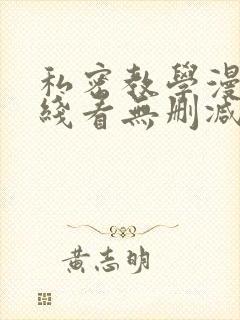 私密教學漫
綫看無刪减
黃志明